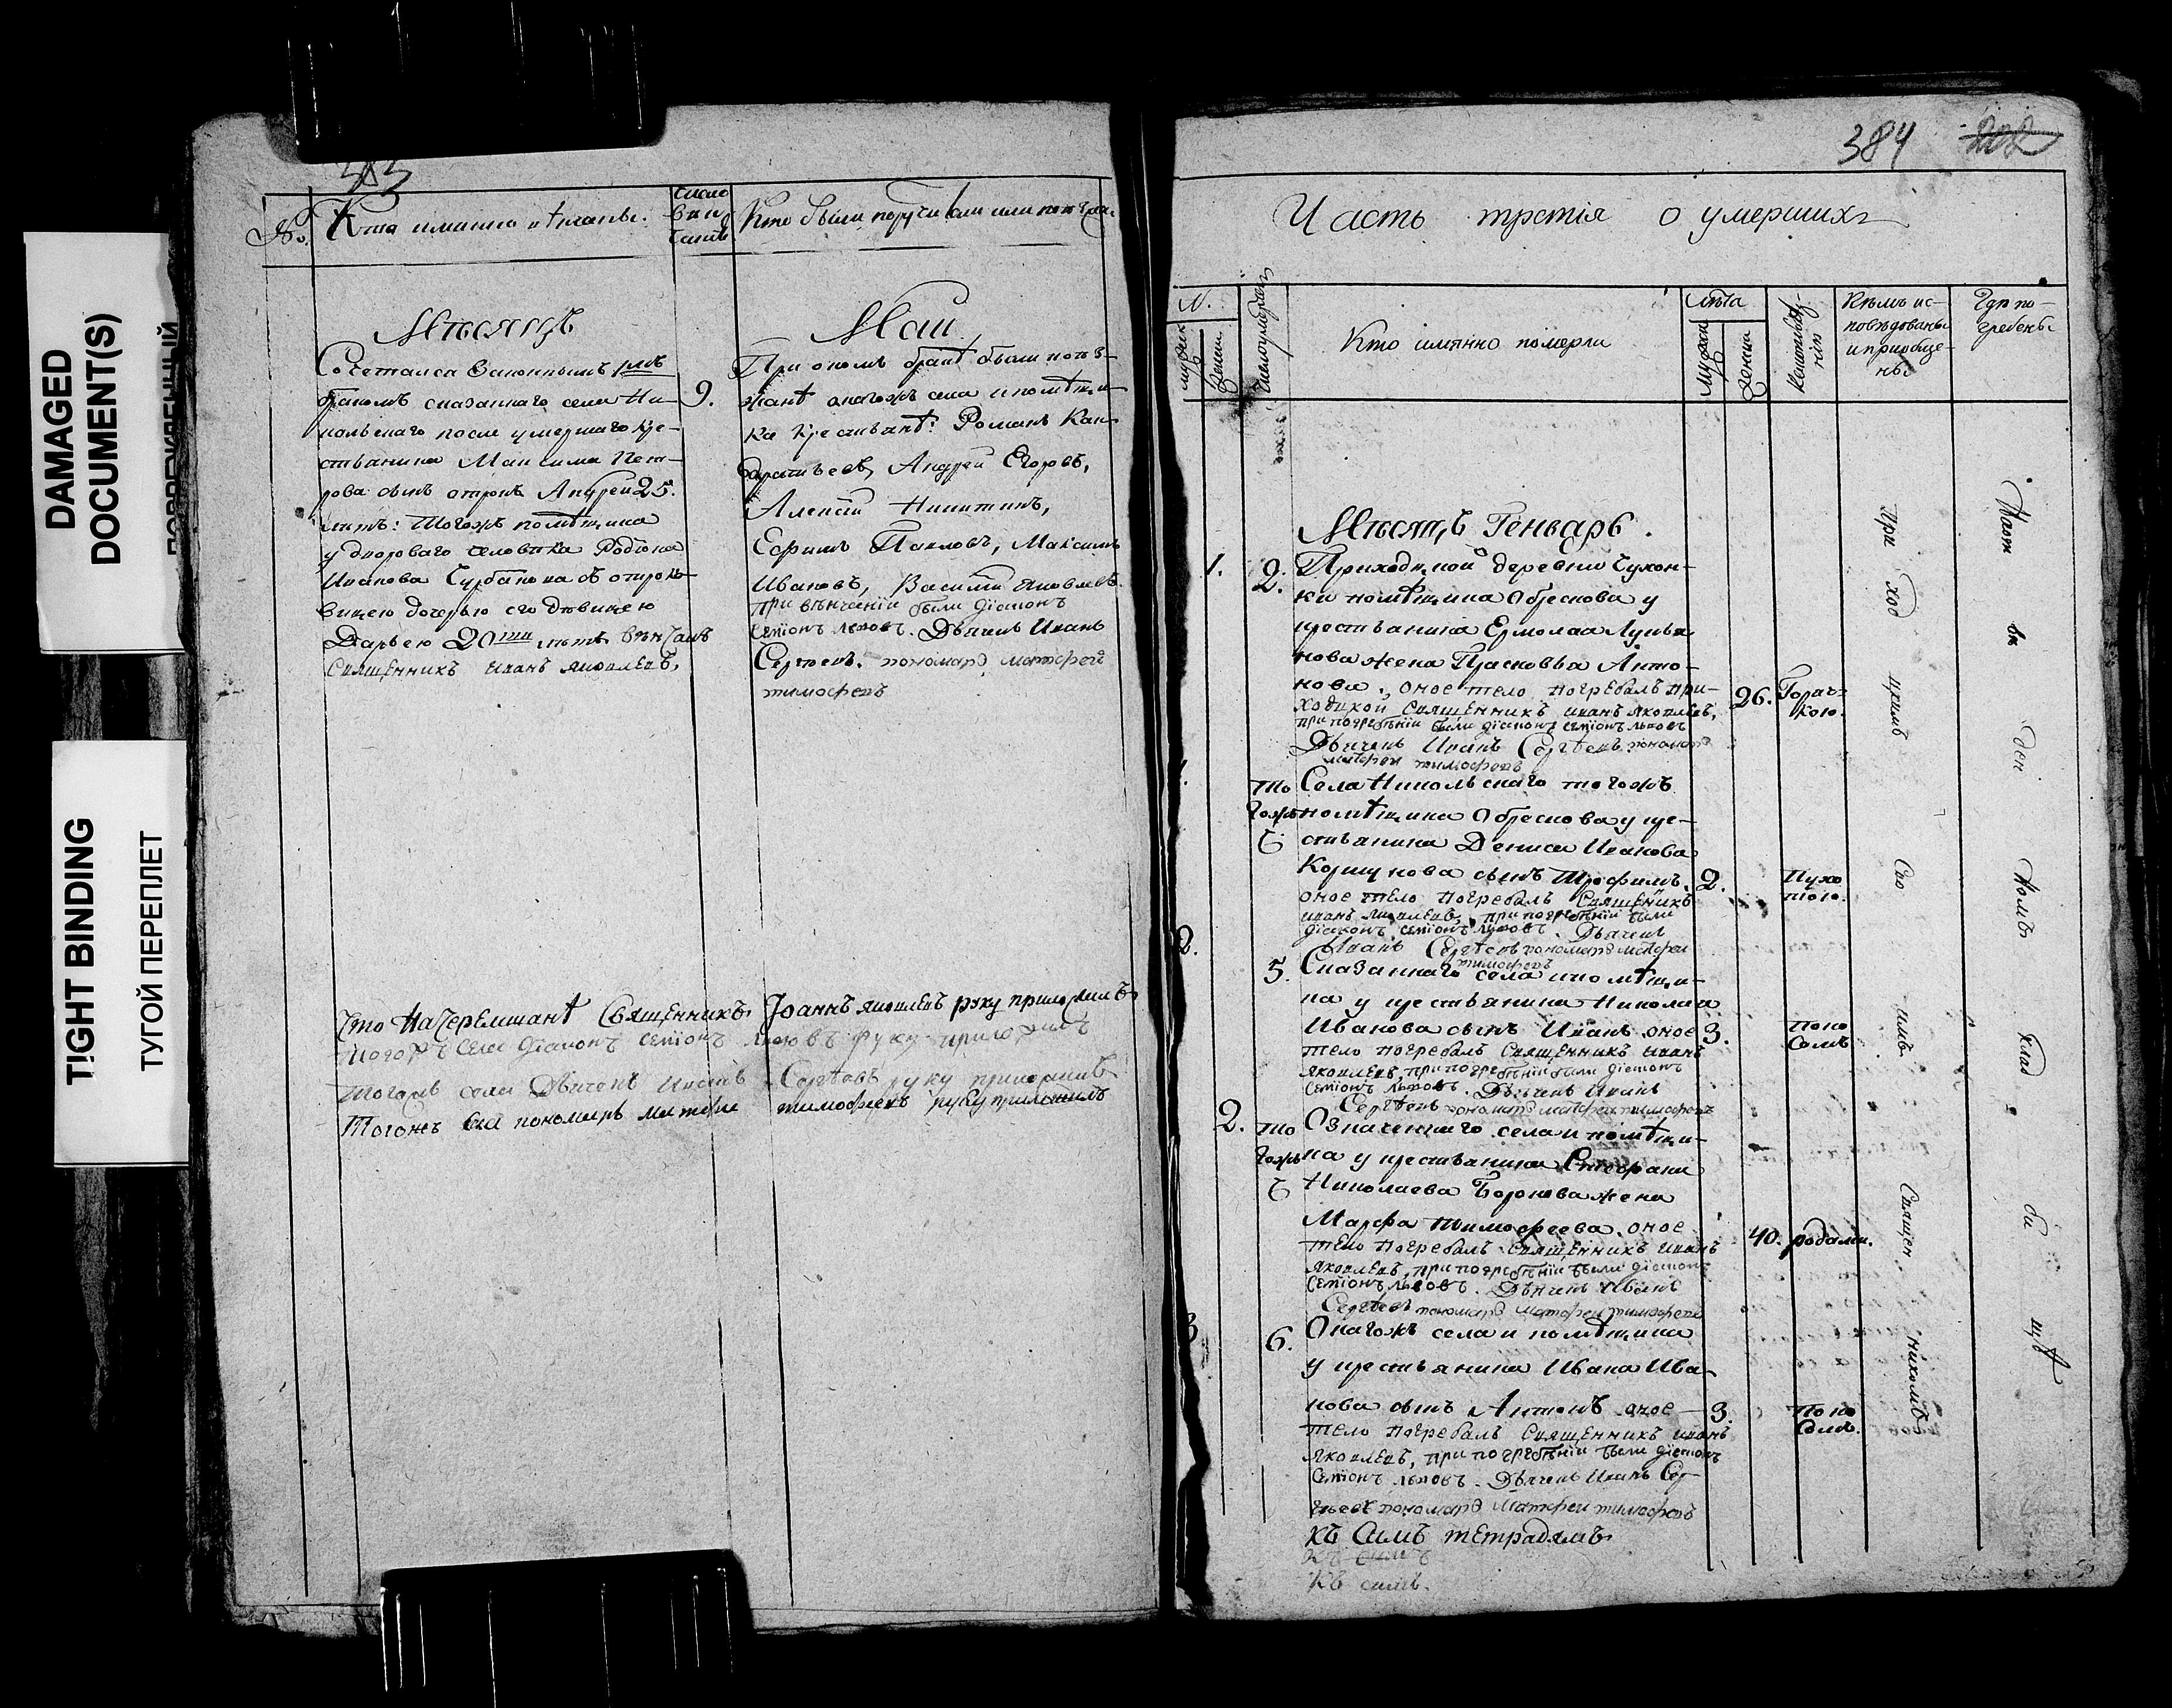 DAMAGED
DOCUMENT(S)
TIGHT BINDING
ТУГОЙ ПЕРЕПЛЕТ
№
Кто имянно вѣнчаны.
Кто были поручители или поѣзжа-
Мѣсяцъ
Май
Сочетался законнымъ
бракомъ сказаннаго села Ни-
кольскаго после умершаго кре-
стьянина Максима Пет-
рова сынъ отрокъ Андрей 25.
лѣтъ: тогожъ помѣщика
у двороваго человѣка Родиона
Иванова Курбанова съ отроко-
вицею дочерью его дѣвицею
Дарьею 20ти лѣтъ вѣнчалъ
Священникъ иванъ яковлевъ.
9.
При ономъ бракѣ были поѣз-
жанѣ оногожъ села и помѣщи-
ка крестьянѣ: Романъ Кан-
дратьевъ, Андрей Егоровъ,
Алексѣй Никитинъ,
Ефимъ Павловъ, Максимъ
Ивановъ, Василей Яковлевъ.
При вѣнчаніи были діаконъ
семіонъ львовъ. Дьячекъ Иванъ
Сергѣевъ. пономарь матфей
тимофеевъ
Села На Черемшанѣ Священникъ Іоаннъ яковлевъ руку приложилъ
тогожъ села діаконъ семіонъ львовъ руку приложилъ
тогожъ села Дьячекъ иванъ Сергѣевъ руку приложилъ
Тогожъ села пономарь матфей тимофеевъ руку приложилъ
384
Часть третія о умершихъ
N.
Кто имянно померли
лѣта
Кѣмъ ис-
повѣдованы
и приобще-
ны
Гдѣ по-
гребены
Мѣсяцъ Генварь.
1.
2.
Приходской деревни Чукон-
ки помѣщика Обрескова у
крестьянина Ермолая Лукья-
нова жена Прасковья Анто-
нова, оное тело погребалъ при-
ходской священникъ иванъ яковлевъ,
при погребѣніи были діаконъ семіонъ львовъ
Дьячекъ Иванъ Сергѣевъ пономарь
матфей тимофеевъ
26.
Горяч-
кою.
то
гожъ
Села Никольскаго тогожъ
помѣщика Обрескова у кре-
стьянина Дениса Иванова
Коршунова сынъ Трофимъ.
оное тело погребалъ священникъ
иванъ яковлевъ, при погребѣніи были
діаконъ семіонъ львовъ. Дьячекъ
Иванъ Сергѣевъ пономарь матфей
тимофеевъ
2.
2.
5.
Сказаннаго села и помѣщи-
ка у крестьянина Николая
Иванова сынъ Иванъ оное
тело погребалъ священникъ иванъ
яковлевъ, при погребѣніи были діаконъ
семіонъ львовъ. Дьячекъ Иванъ
Сергѣевъ пономарь матфей тимофеевъ
3.
Поно
сомъ
2.
то
гожъ
Означеннаго села и помѣщи-
ка у крестьянина Стефана
Николаева Боронова жена
Марфа Тимофеева. оное
тело погребалъ священникъ иванъ
яковлевъ, при погребѣніи были діаконъ
семіонъ львовъ. Дьячекъ Иванъ
Сергѣевъ пономарь матфей тимофеевъ
40.
родами.
3
6.
Онагожъ села и помѣщика
у крестьянина Ивана Ива-
нова сынъ Антонъ оное
тело погребалъ священникъ иванъ
яковлевъ, при погребѣніи были діаконъ
семіонъ львовъ. Дьячекъ Иванъ Сер-
гѣевъ пономарь матфей тимофеевъ
3.
Поно
сомъ.
къ симъ тетрадямъ
къ симъ
къ симъ.
При ход цкимъ Сво имъ Священ никомъ
Кладбищѣ